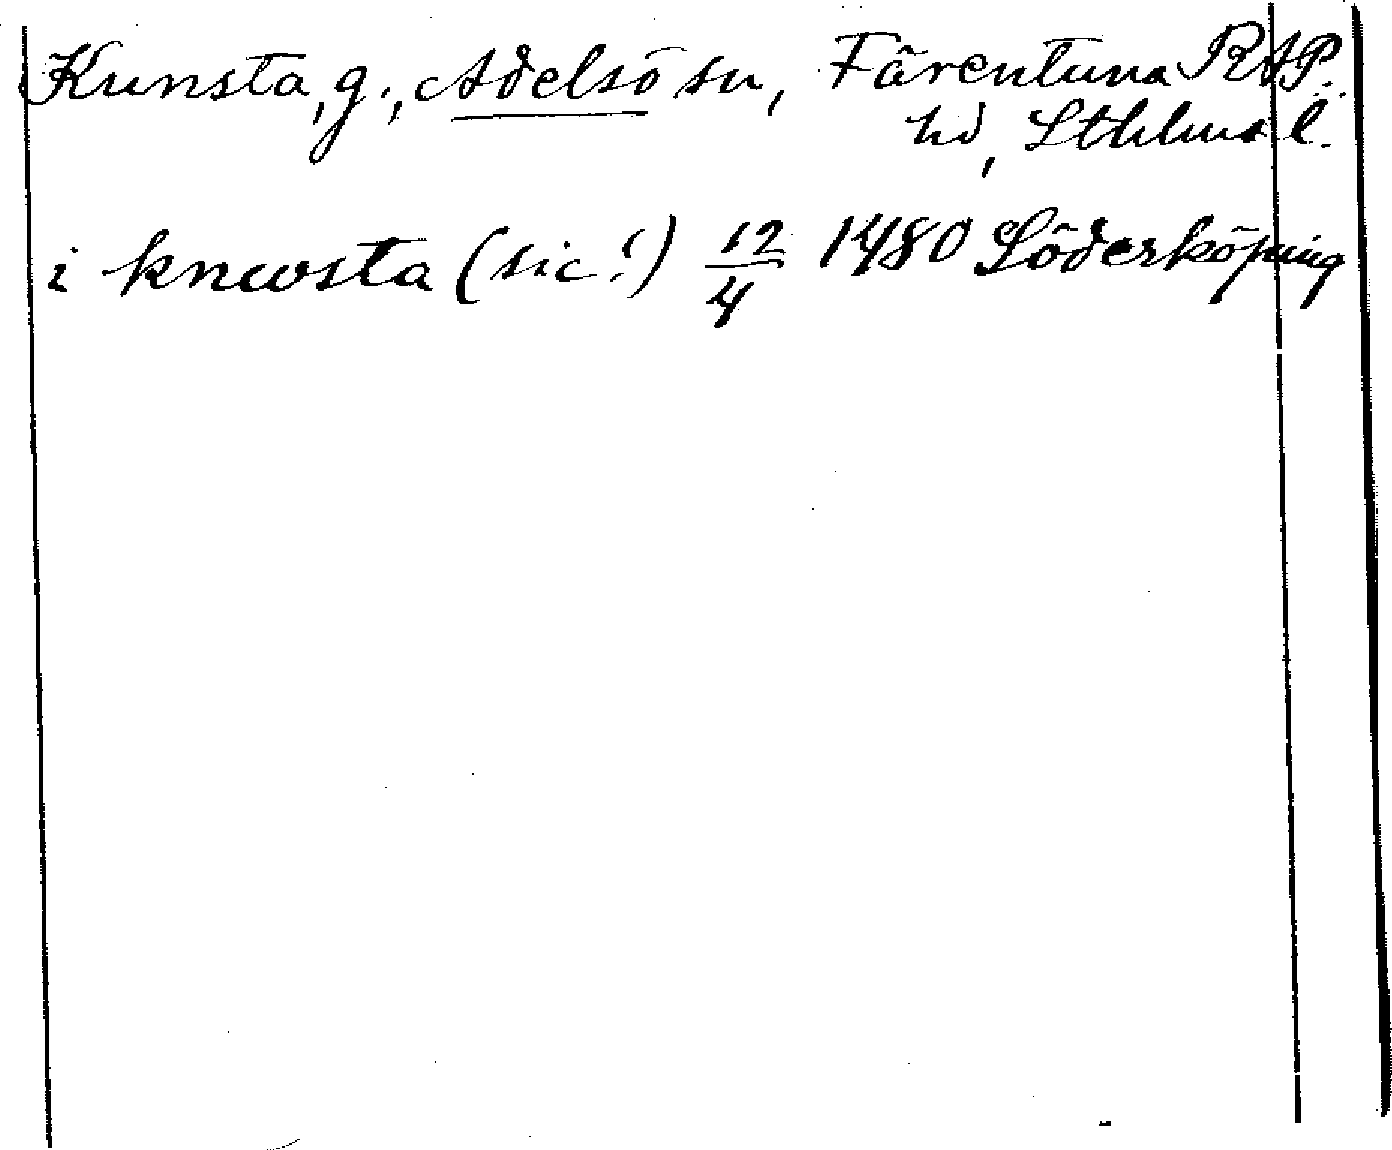 Kunsta, g., Adelsö sn, Färentuna RAP.
hd, Sthlms l.
i knwsta (sic!) 12/4 1480 Söderköping